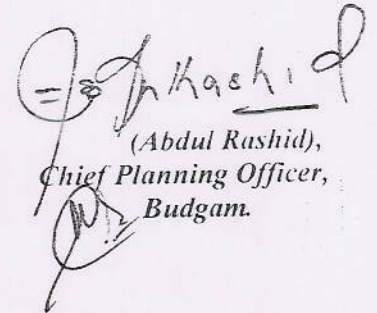 (Abdul Rashid),
Chief Planning Officer,
Budgam.